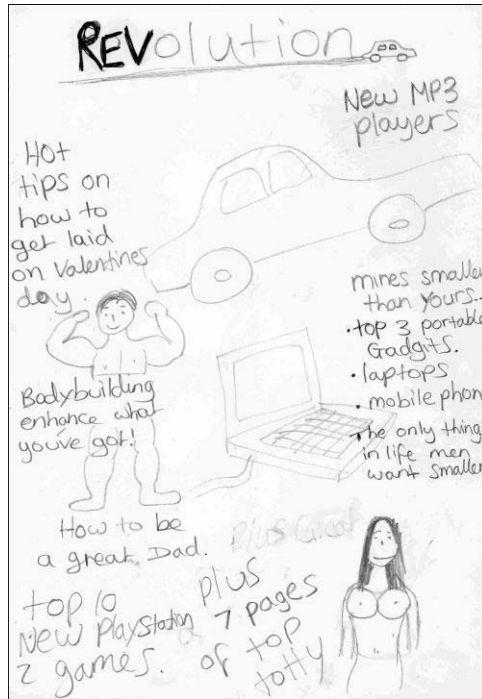 REVolution
New MP3
players
Hot
tips on
how to
get laid
on Valentines
day.
mines smaller
than yours..
• top 3 portable
Gadgits.
• laptops
• mobile phon
• the only thing
in life men
want smaller
Bodybuilding
enhance what
you've got!
How to be
a great Dad.
Plus Great
top 10
New PlayStation
2 games.
plus
7 pages
of top
totty